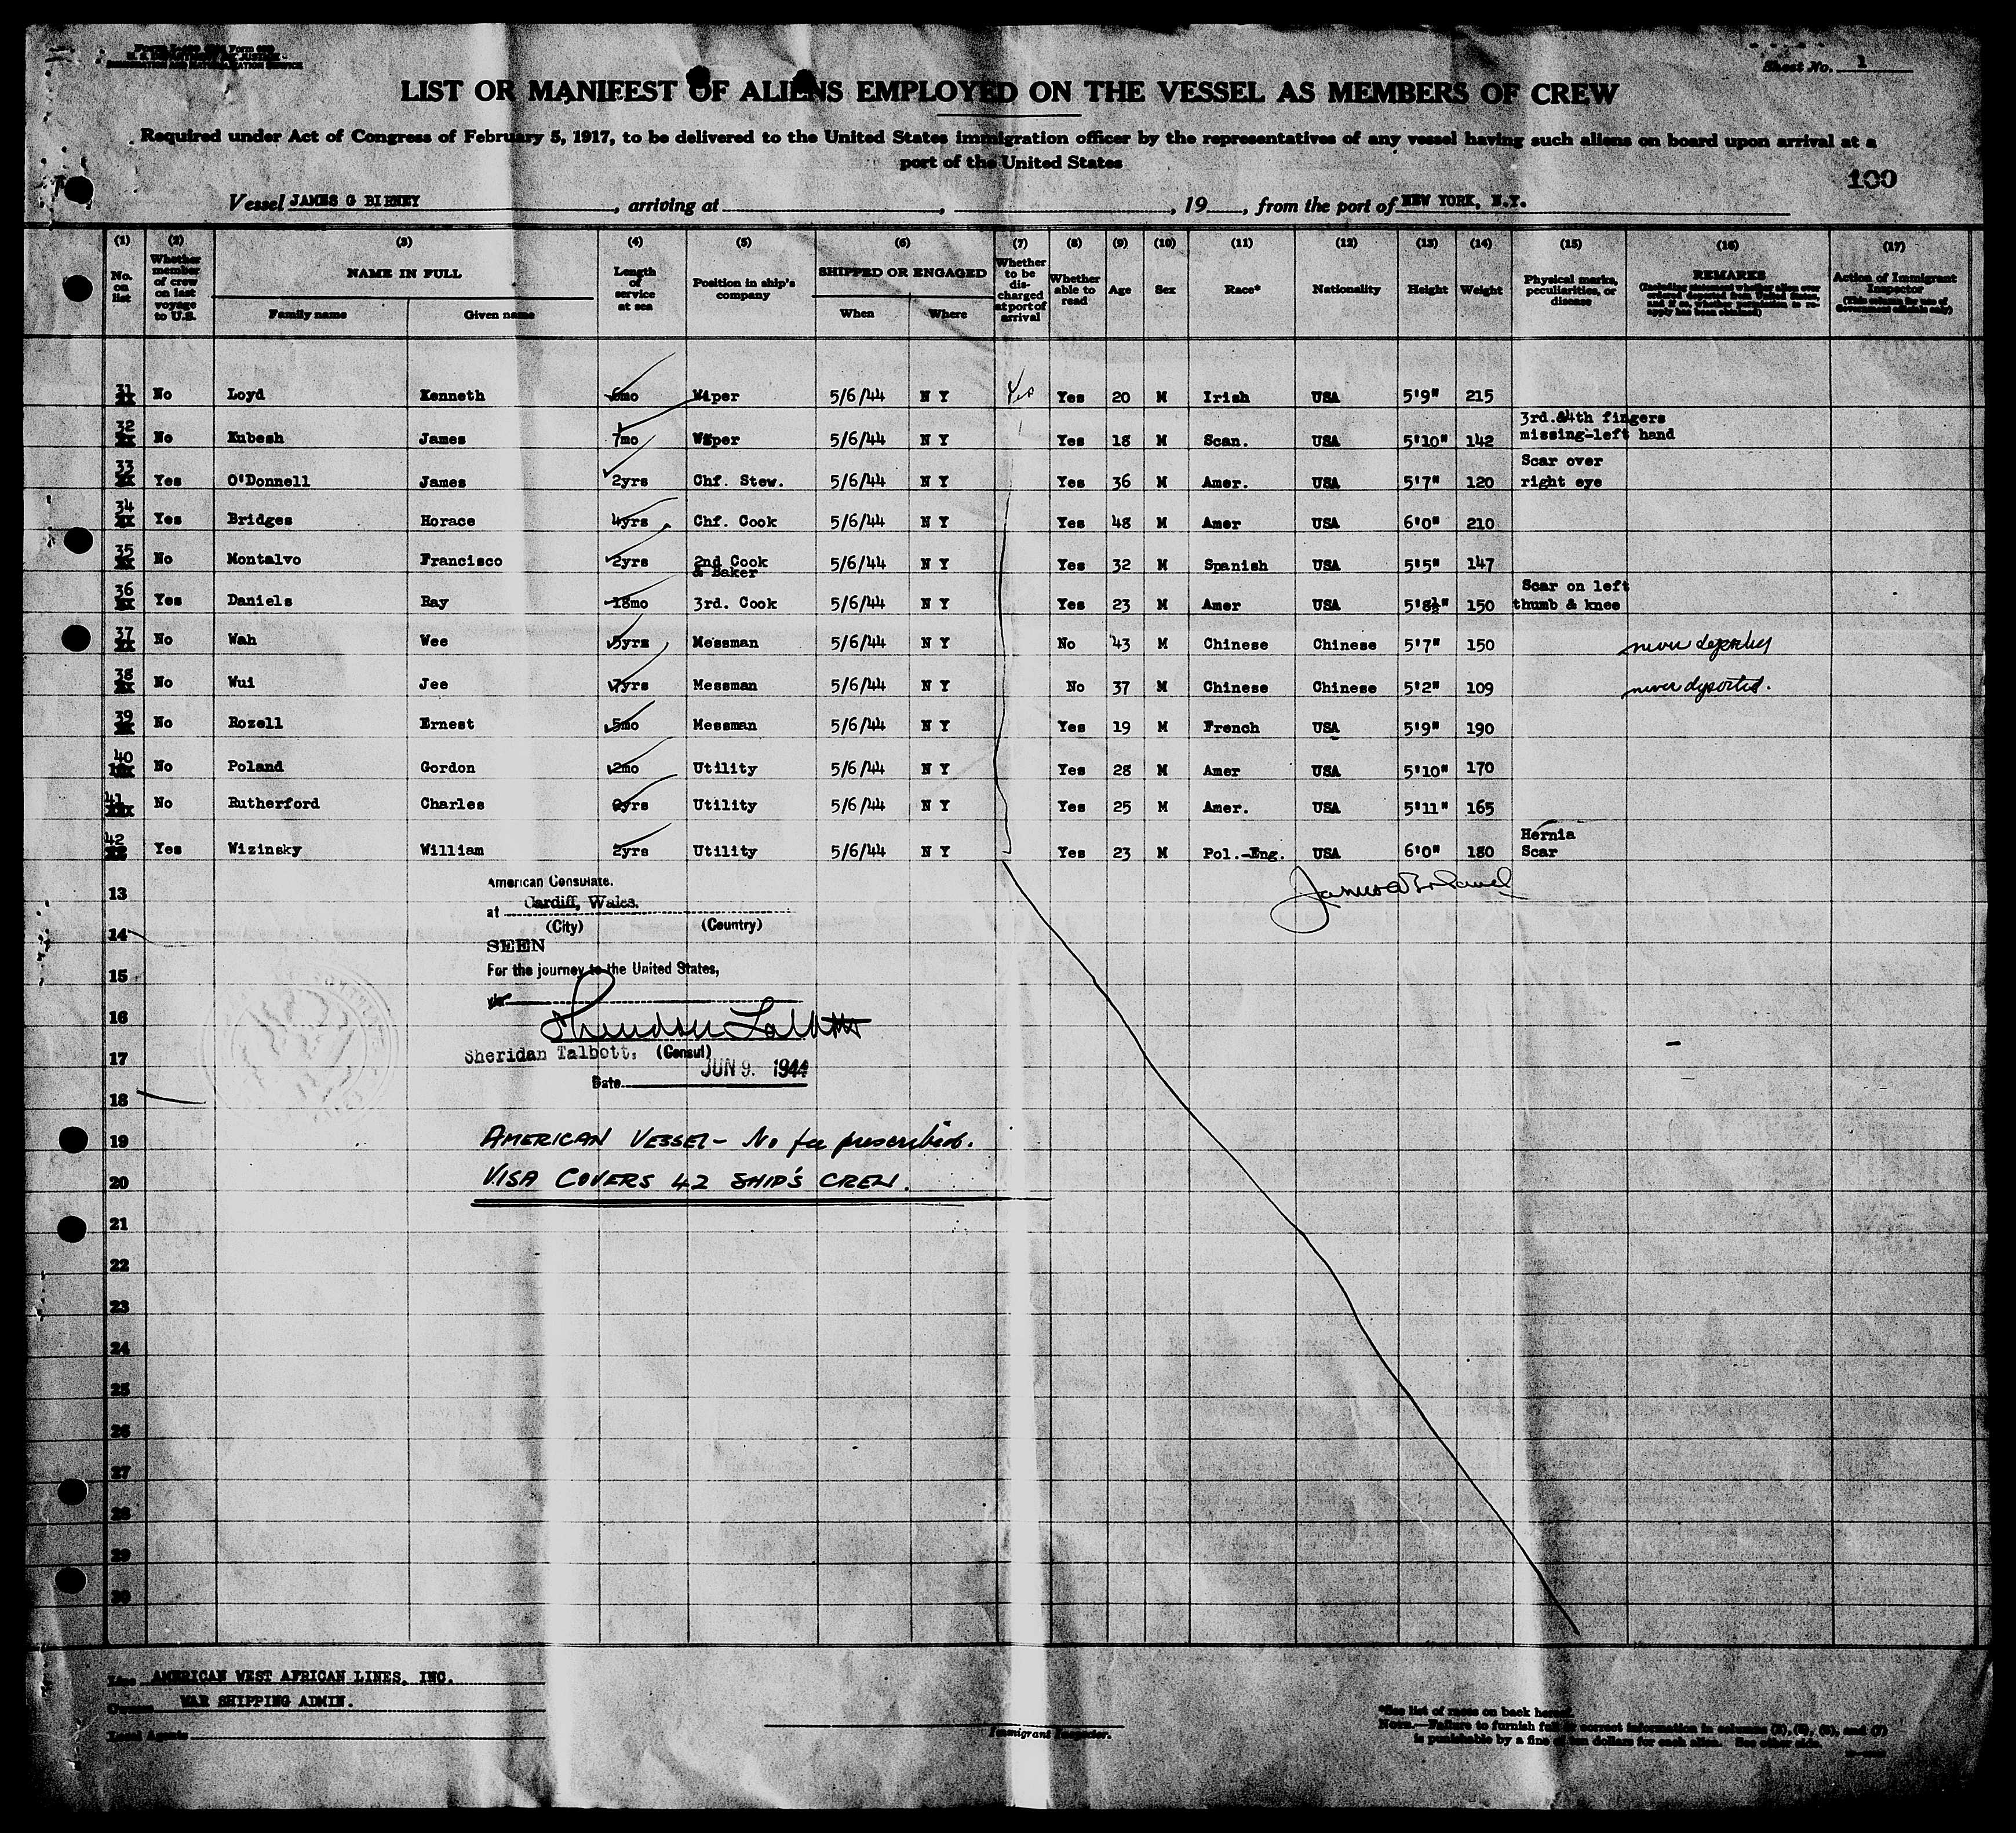 Sheet No. 1
LIST OR MANIFEST OF ALIENS EMPLOYED ON THE VESSEL AS MEMBERS OF CREW
Required under Act of Congress of February 5, 1917, to be delivered to the United States immigration officer by the representatives of any vessel having such aliens on board upon arrival at a
port of the United States
100
Vessel JAMES G BIRNEY, arriving at , , 19 , from the port of NEW YORK, N.Y.
(1) (2) (3) (4) (5) (6) (7) (8) (9) (10) (11) (12) (13) (14) (15) (16) (17)
No. on list
Whether member of crew on last voyage to U.S.
NAME IN FULL
Family name Given name
Length of service at sea
Position in ship's company
SHIPPED OR ENGAGED
When Where
Whether to be discharged at port of arrival
Whether able to read
Age Sex Race* Nationality Height Weight
Physical marks, peculiarities, or disease
REMARKS
(Including statement whether alien ever ordered deported from United States, and if so, whether permission to reapply has been obtained)
Action of Immigrant Inspector
(This column for use of Government officials only)
31 No Loyd Kenneth 6mo Wiper 5/6/44 N Y Yes Yes 20 M Irish USA 5'9" 215
32 No Kubesh James 7mo Wiper 5/6/44 N Y Yes 18 M Scan. USA 5'10" 142 3rd.&4th fingers missing-left hand
33 Yes O'Donnell James 2yrs Chf. Stew. 5/6/44 N Y Yes 36 M Amer. USA 5'7" 120 Scar over right eye
34 Yes Bridges Horace 4yrs Chf. Cook 5/6/44 N Y Yes 48 M Amer USA 6'0" 210
35 No Montalvo Francisco 2yrs 2nd Cook & Baker 5/6/44 N Y Yes 32 M Spanish USA 5'5" 147
36 Yes Daniels Ray 18mo 3rd. Cook 5/6/44 N Y Yes 23 M Amer USA 5'8½" 150 Scar on left thumb & knee
37 No Wah Wee 5yrs Messman 5/6/44 N Y No 43 M Chinese Chinese 5'7" 150 never deported
38 No Wui Jee 7yrs Messman 5/6/44 N Y No 37 M Chinese Chinese 5'2" 109 never deported.
39 No Rozell Ernest 5mo Messman 5/6/44 N Y Yes 19 M French USA 5'9" 190
40 No Poland Gordon 2mo Utility 5/6/44 N Y Yes 28 M Amer USA 5'10" 170
41 No Rutherford Charles yrs Utility 5/6/44 N Y Yes 25 M Amer. USA 5'11" 165
42 Yes Wizinsky William 2yrs Utility 5/6/44 N Y Yes 23 M Pol.-Eng. USA 6'0" 180 Hernia Scar
13
American Consulate.
at Cardiff, Wales.
(City) (Country)
14
SEEN
15
For the journey to the United States,
via
16
Sheridan Talbott
17
Sheridan Talbott, (Consul)
Date JUN 9. 1944
18
19 AMERICAN VESSEL - No fee prescribed.
20 VISA COVERS 42 SHIP'S CREW.
21
22
23
24
25
26
27
28
29
30
Line AMERICAN WEST AFRICAN LINES, INC.
Owners WAR SHIPPING ADMIN.
Local Agents
Immigrant Inspector.
*See list of races on back hereof.
NOTE.—Failure to furnish full or correct information in columns (2), (5), (6), and (7)
is punishable by a fine of ten dollars for each alien. See other side.